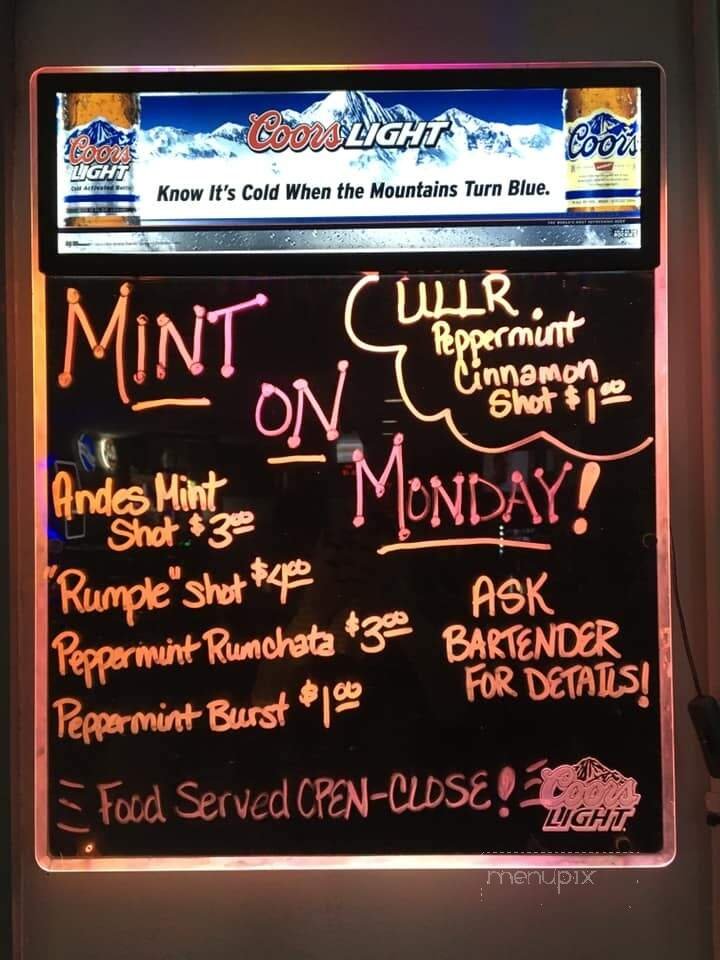 Coors LIGHT
Coors
LIGHT
Cold Activated
Coors
Know It's Cold When the Mountains Turn Blue.
MINT
ON
MONDAY!
ULLR
Peppermint
Cinnamon
Shot $1.00
Andes Mint
Shot $3.00
"Rumple" Shot $4.00
Peppermint Rumchata $3.00
Peppermint Burst $1.00
ASK
BARTENDER
FOR DETAILS!
Food Served OPEN-CLOSE!
Coors
LIGHT
menupix